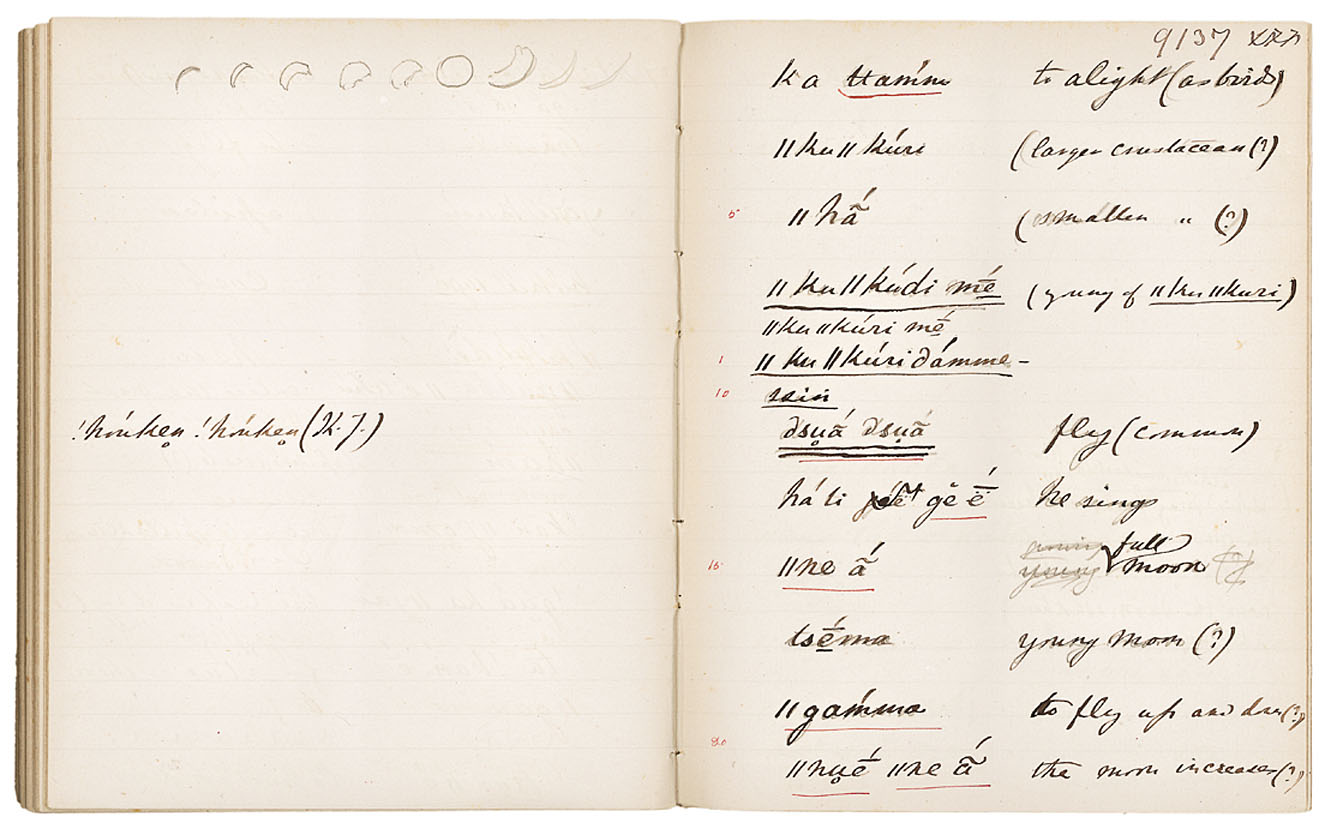 !hóuken̥ !hóuken̥ (K. J.)
9137
ka ttam̋m to alight (as birds)
ǁku ǁkúri (larger crustacean (?)
5 ǁhã́ (smaller " (?)
ǁku ǁkúdi mé̱ (young of ǁku ǁkuri)
ǁku ǁkúri mé̱
1 ǁku ǁkúri dámme-
10 sin
dsu̥ã́ dsu̥ã́ fly (common)
há ti gĕ é̄ he sings
15 ǁne ã́ young full moon (?)
tsé̱ma young moon (?)
ǁgam̋ma to fly up and down (?)
20 ǁnu̥é̄ ǁne ã́ the moon increases (?)